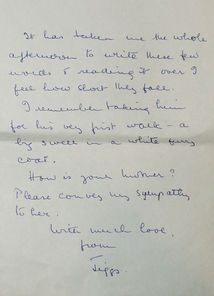 It has taken me the whole
afternoon to write these few
words & reading it over I
feel how short they fall.
I remember taking him
for his very first walk - a
big swell in a white fury
coat.
How is your mother?
Please convey my sympathy
to her.
With much love,
from
Jiggs.